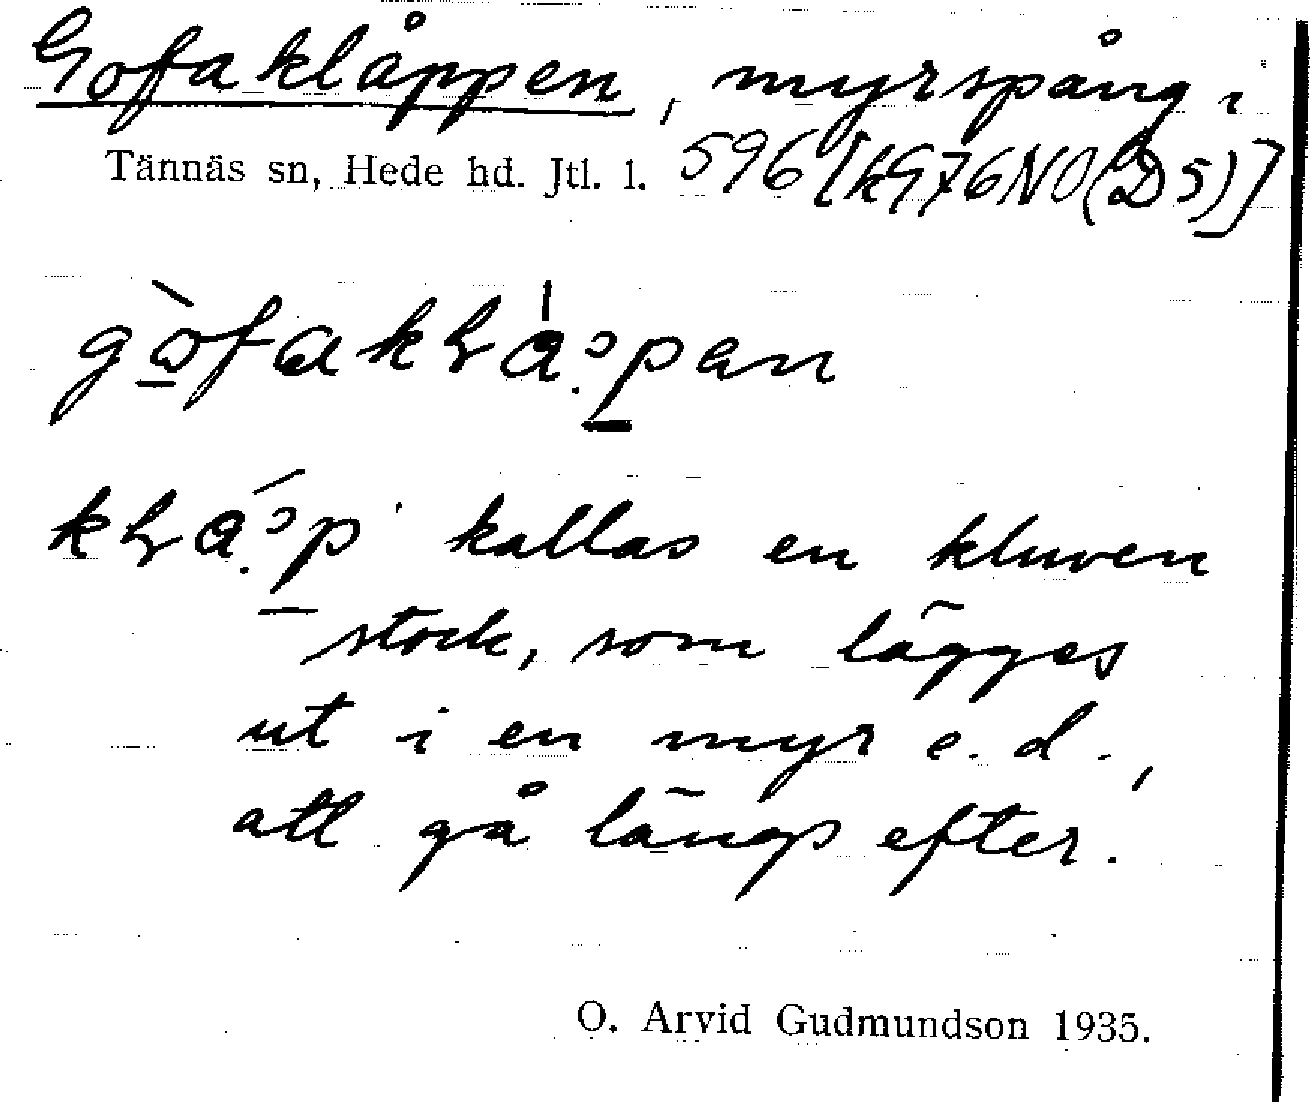 Gofaklåppen, myrspång i
Tännäs sn, Hede hd. Jtl. l. 596 [kG76NO(D5)]
kallas en kluven
stock, som lägges
ut i en myr e. d.,
att gå längs efter.
O. Arvid Gudmundson 1935.